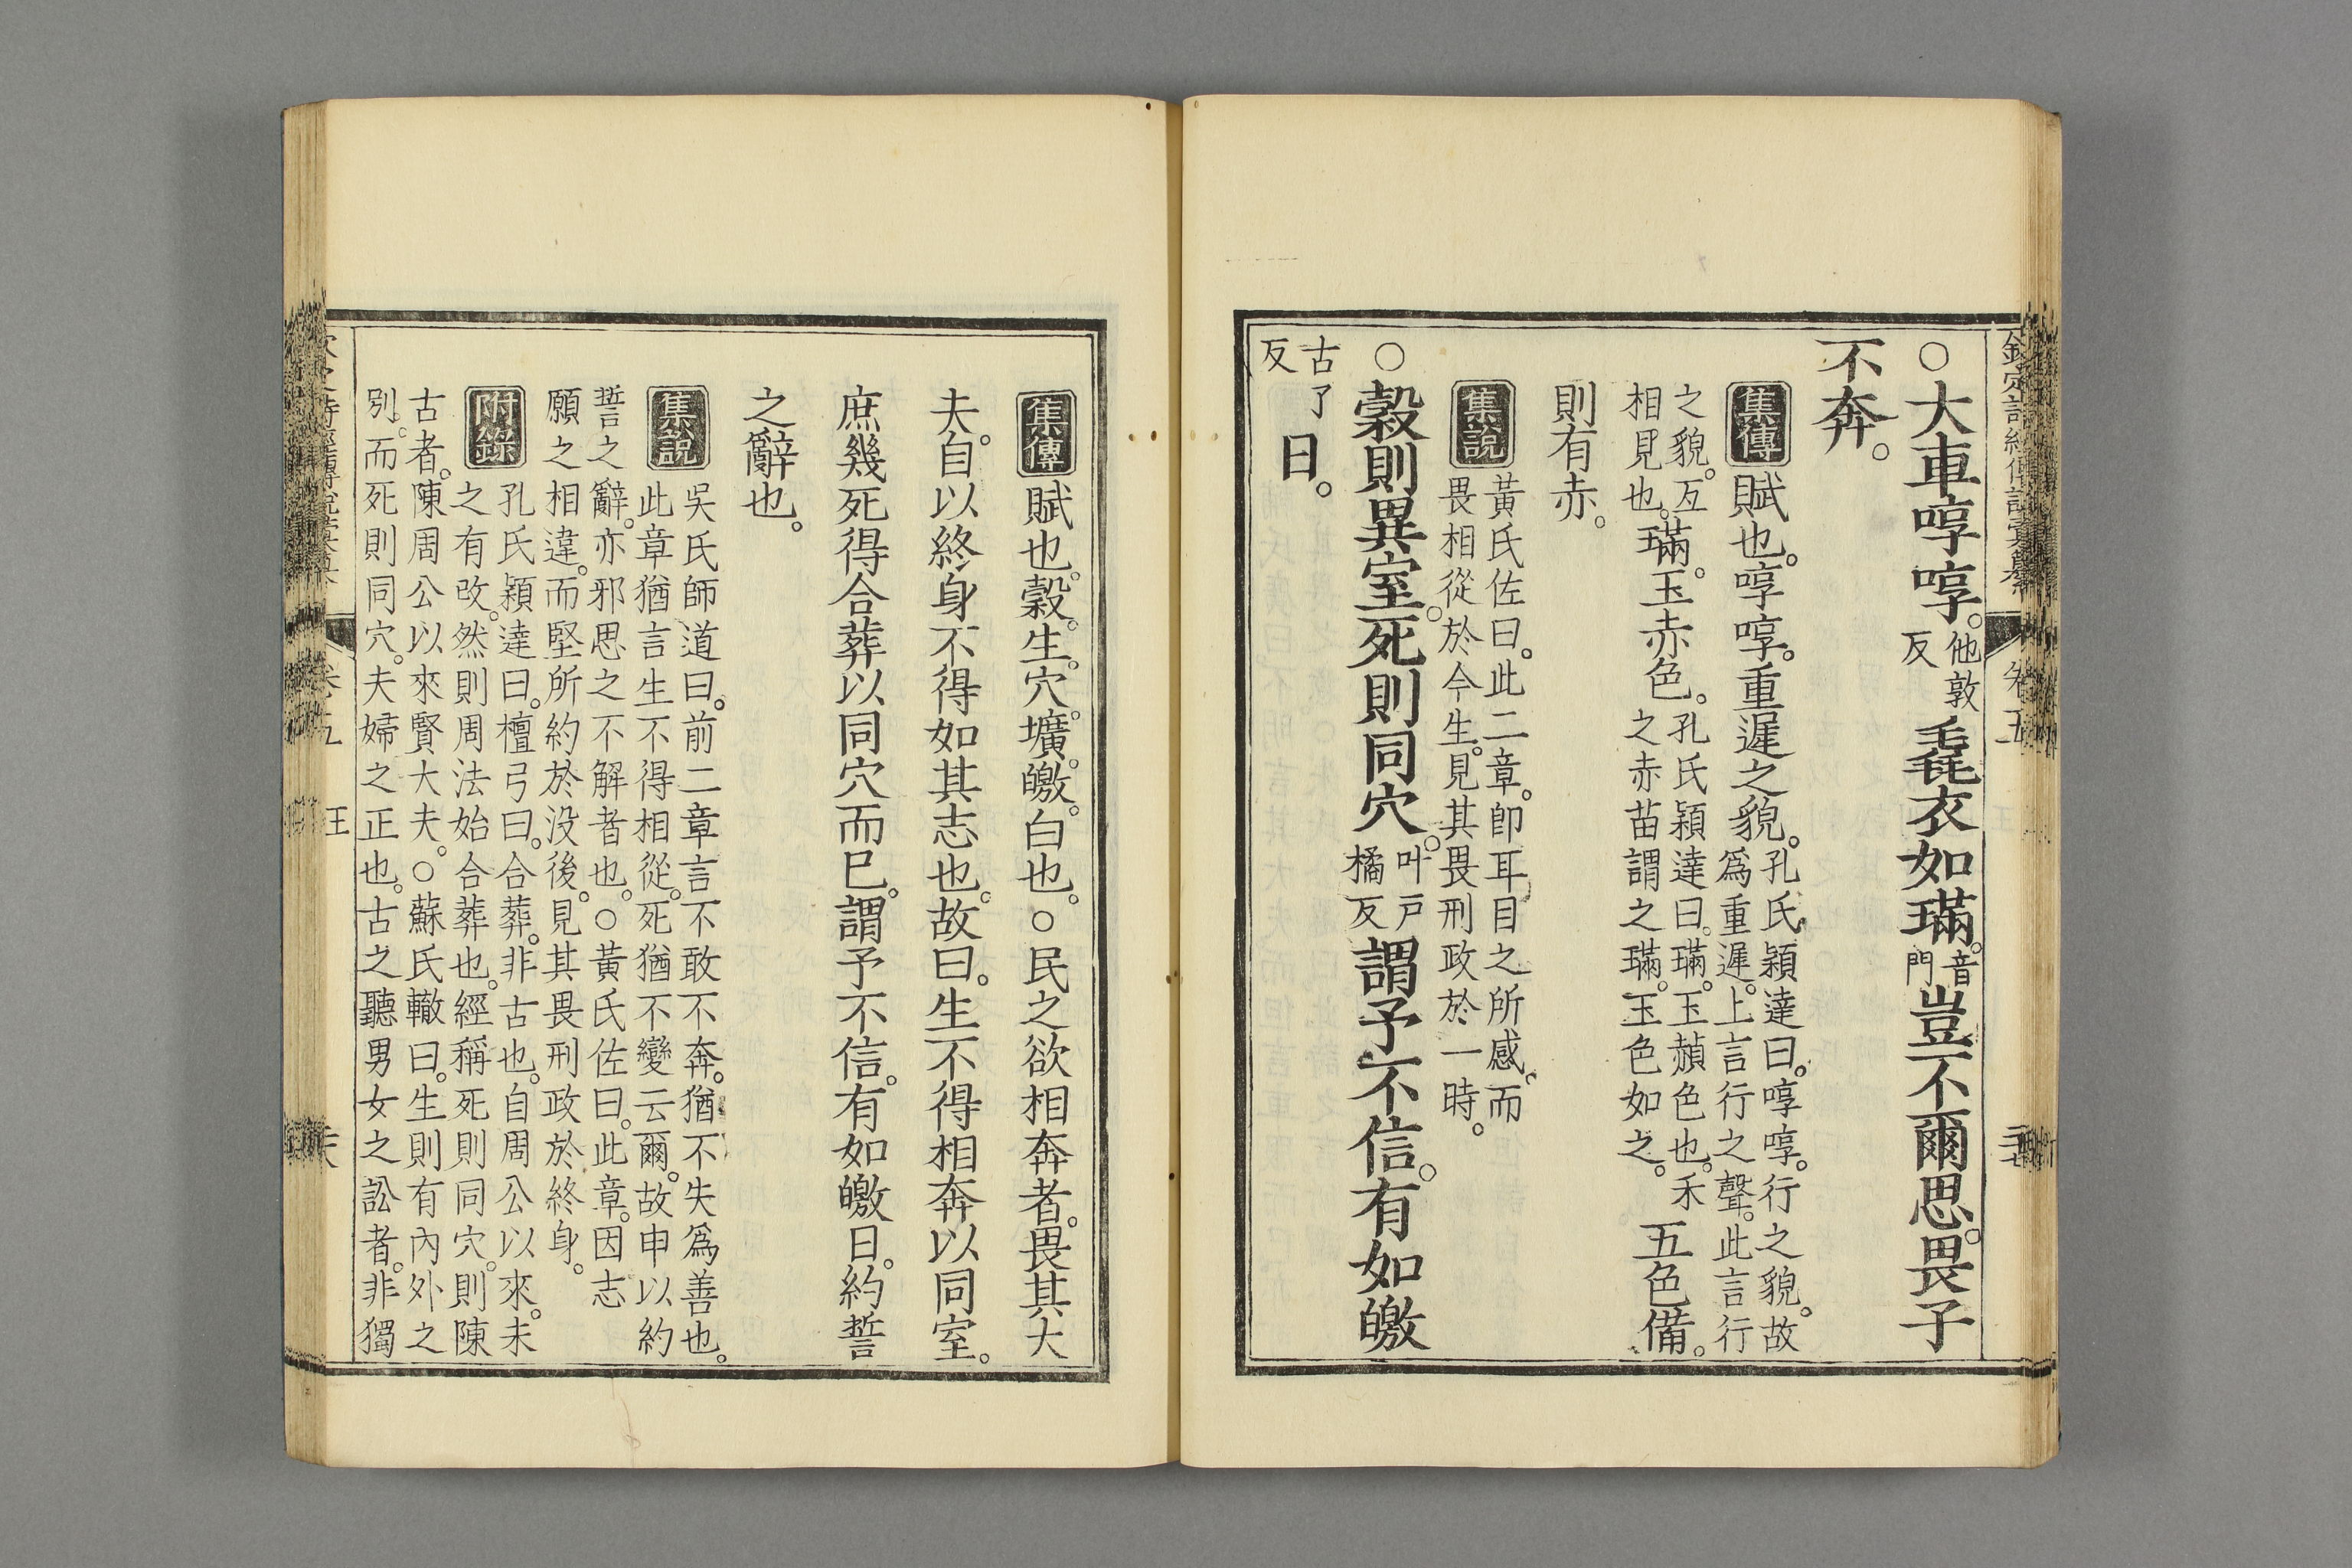 ○大車啍啍。他敦反毳衣如璊。音門豈不爾思。畏子
不奔。
集傳
賦也。啍啍。重遲之貌。孔氏穎達曰。啍啍。行之貌。故
爲重遲。上言行之聲。此言行
之貌。互
相見也。
璊。玉赤色。孔氏穎達曰。璊。玉赬色也。禾
之赤苗謂之璊。玉色如之。
五色備。
則有赤。
集說
黃氏佐曰。此二章。卽耳目之所感。而
畏相從於今生。見其畏刑政於一時。
○穀則異室。死則同穴。叶戸橘反謂予不信。有如皦
古了反日。
欽定詩經傳說彙纂
卷五
集傳
賦也。穀。生。穴。壙。皦。白也。○民之欲相奔者。畏其大
夫。自以終身不得如其志也。故曰。生不得相奔以同室。
庶幾死得合葬以同穴而已。謂予不信。有如皦日。約誓
之辭也。
集說
吳氏師道曰。前二章言不敢不奔。猶不失爲善也。
此章猶言生不得相從。死猶不變云爾。故申以約
誓之辭。亦邪思之不解者也。○黃氏佐曰。此章。因志
願之相違。而堅所約於没後。見其畏刑政於終身。
附錄
孔氏穎達曰。檀弓曰。合葬。非古也。自周公以來。未
之有改。然則周法始合葬也。經稱死則同穴。則陳
古者。陳周公以來賢大夫。○蘇氏轍曰。生則有內外之
別。而死則同穴。夫婦之正也。古之聽男女之訟者。非獨
卷五
王